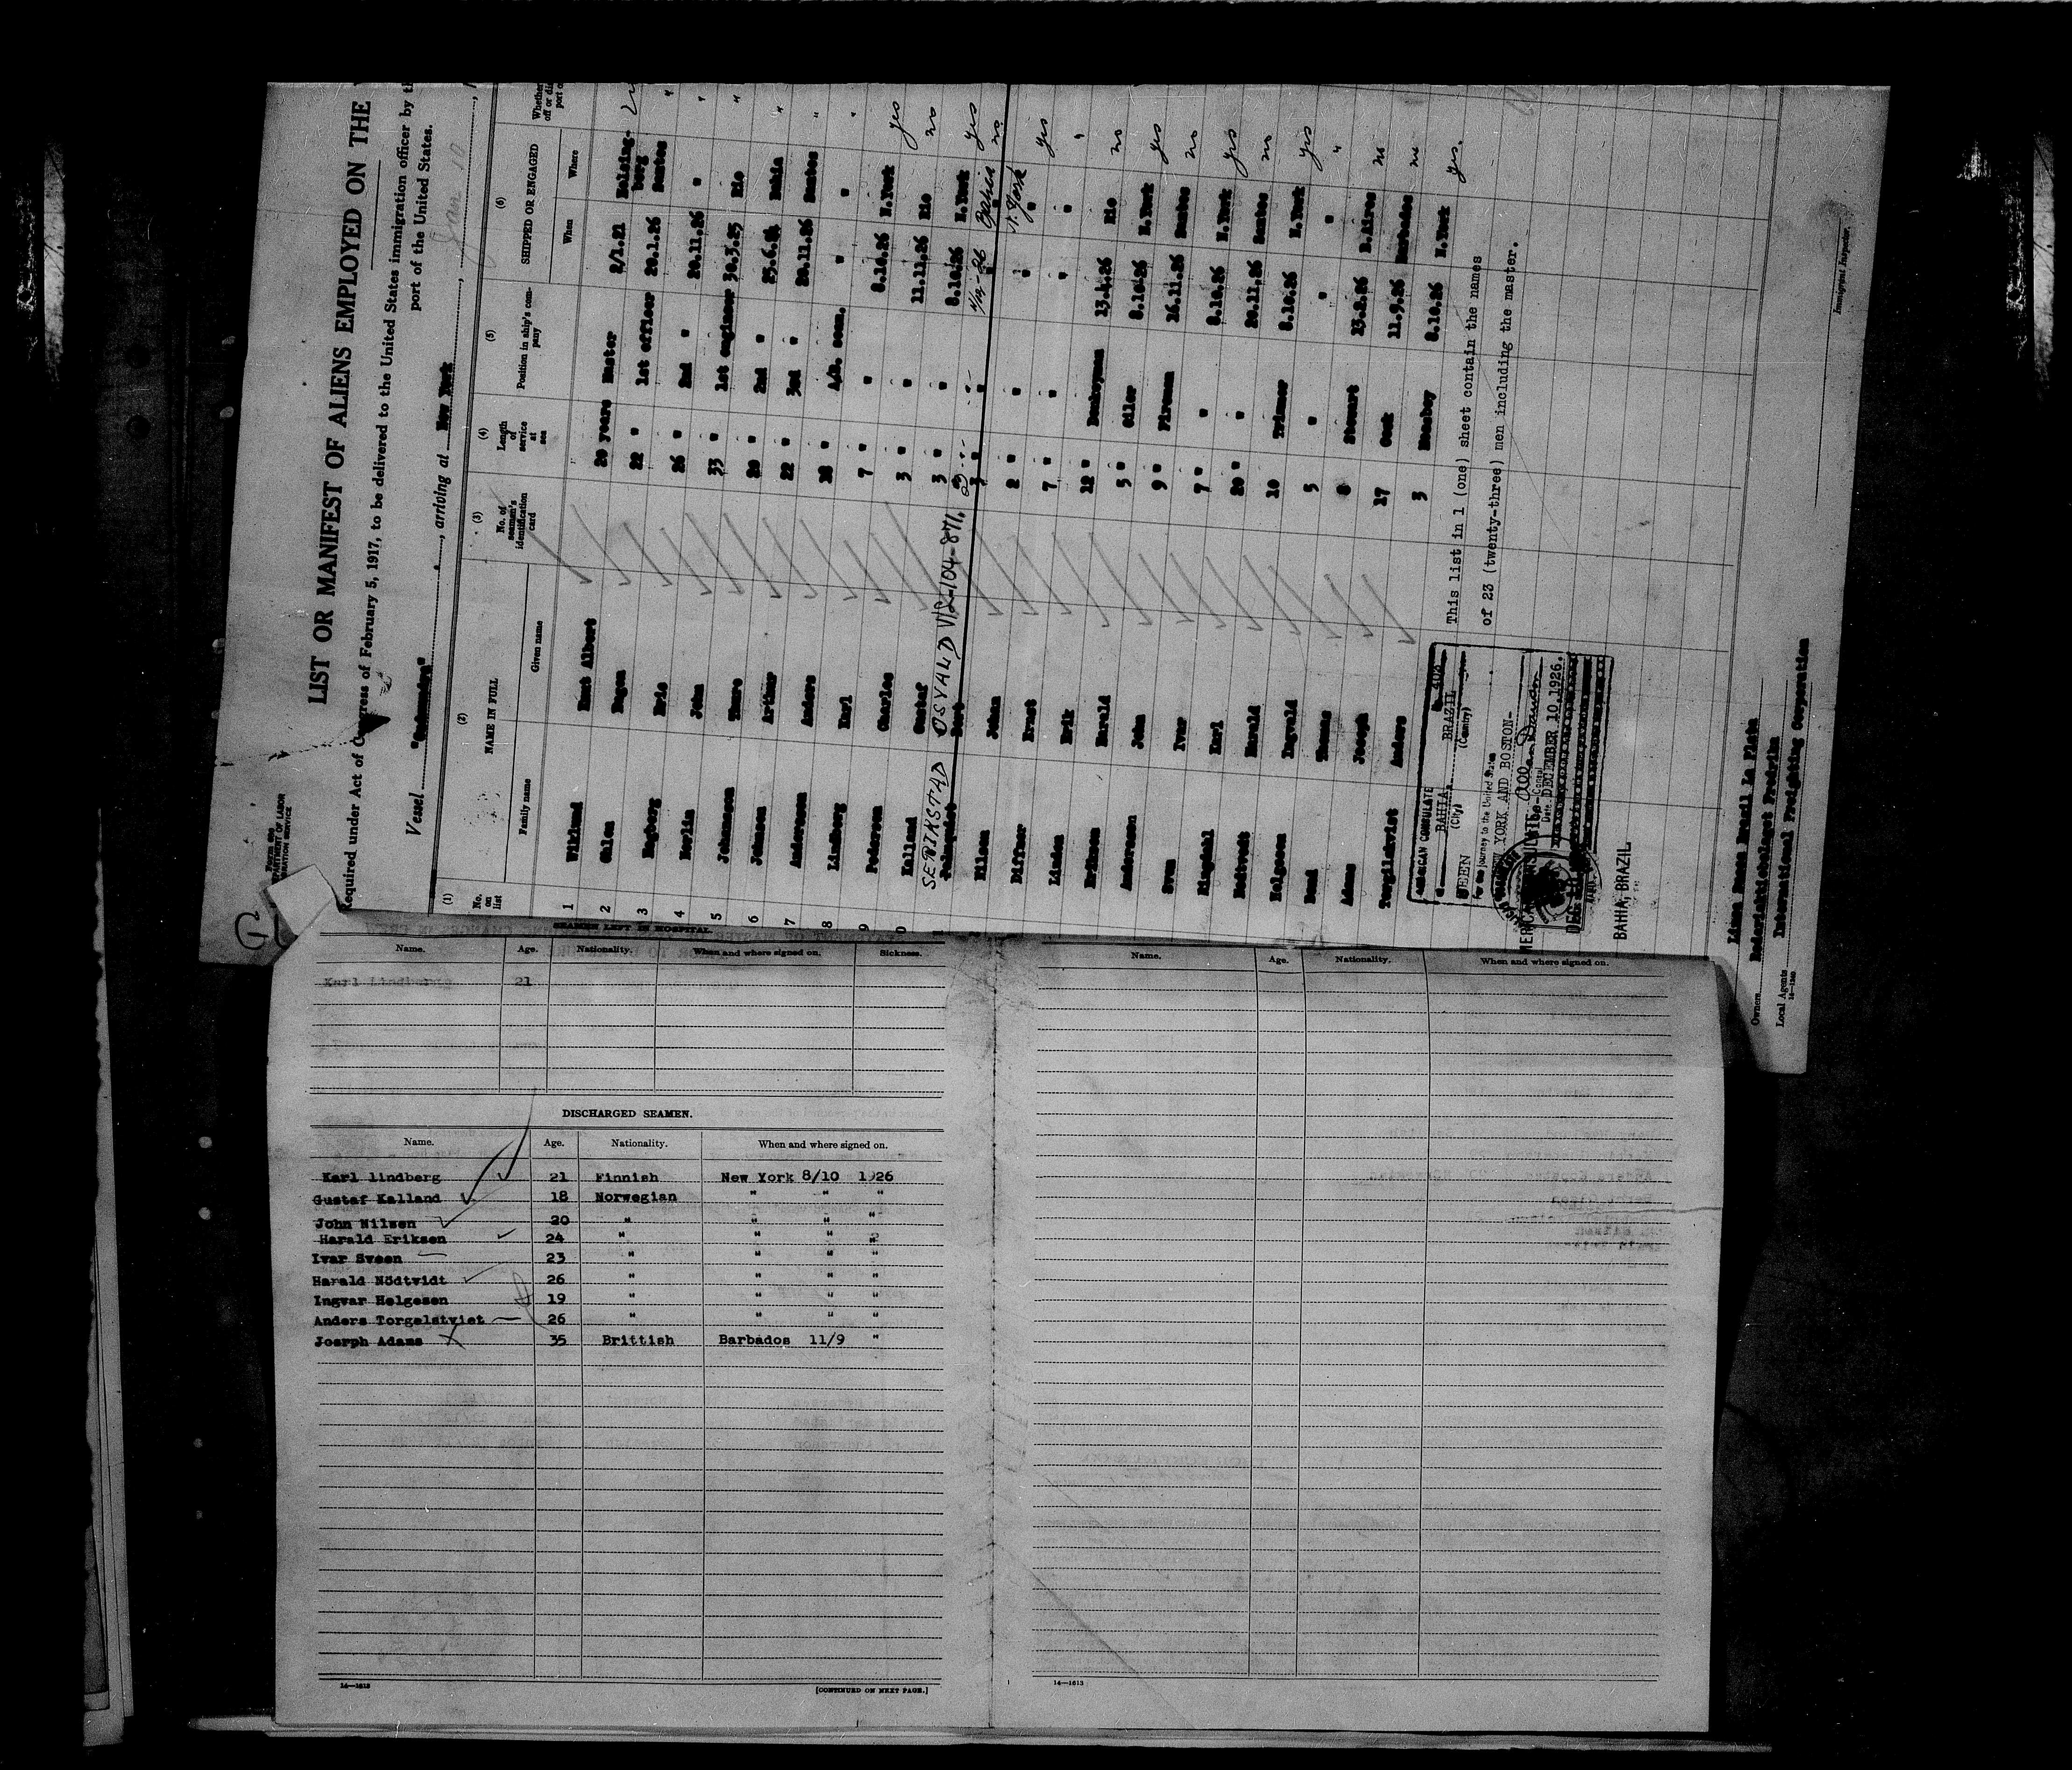 Form 689
DEPARTMENT OF LABOR
IMMIGRATION SERVICE
LIST OR MANIFEST OF ALIENS EMPLOYED ON THE
Required under Act of Congress of February 5, 1917, to be delivered to the United States immigration officer by th
port of the United States.
Vessel , arriving at New York , Jan 10
(1) (2) (3) (4) (5) (6)
No. on list NAME IN FULL No. of seaman's identification card Length of service at sea Position in ship's company SHIPPED OR ENGAGED Whether
Family name Given name When Where
1 Wiklund Knut Albert 20 years Master 2/1.21 Helsingborg
2 Ohlen Hagen 22 " 1st officer 20.1.26 Santos "
3 Hagberg Eric 26 " 2nd " 20.11.26 " "
4 John 33 " 1st engineer 30.3.25 Rio "
5 Johansson Thure 20 " 2nd " Bahia "
6 Johnson Arthur 22 " 3rd " 20.11.26 Santos "
7 Andersson Anders 18 " A.B. seam. " " "
8 Lindberg Karl 7 " " 8.10.26 N.York yes
9 Pedersen Charles 3 " " 11.11.26 Rio no
0 Kalland Gustaf 3 " " 8.10.26 N.York yes
SERIKSTAD OSVALD V/S-104-871. Bahia no
Nilsen Johan 2 " " " N. York yes
Ernst 7 " " " " "
Linden Erik 12 " Donkeyman 13.4.26 Rio no
Eriksen Harald 5 " Oiler 8.10.26 N.York yes
Andersson John 9 " Fireman 26.11.26 Santos no
Sven Ivar 7 " " 8.10.26 N.York yes
Ringdahl Karl 20 " " 20.11.26 Santos no
Nodtvedt Harald 10 Trimmer 8.10.26 N.York yes
Helgesen Ingvald 5 " " " "
Thomas Stewart 13.2.26 B.Aires no
Adams Joseph 17 Cook 11.9.26 Barbados no
Torgilskvist Anders 3 Messboy 8.10.26 N.York yes.
This list in 1 (one) sheet contain the names
of 23 (twenty-three) men including the master.
AMERICAN CONSULATE
BAHIA, BRAZIL
(City) (Country)
SEEN
for the journey to the United States
NEW YORK AND BOSTON-
Date. DECEMBER 10, 1926.
BAHIA, BRAZIL
Linea Brasil La Plata
Owners Rederiaktiebolaget Fredrika
Local Agents International Freighting Corporation
14—1240
Immigrant Inspector.
SEAMEN LEFT IN HOSPITAL.
Name. Age. Nationality. When and where signed on. Sickness.
Karl Lindberg 21
Name. Age. Nationality. When and where signed on.
DISCHARGED SEAMEN.
Name. Age. Nationality. When and where signed on.
Karl lindberg 21 Finnish New York 8/10 1926
Gustaf Kalland 18 Norwegian " " "
John Nilsen 20 " " " "
Harald Eriksen 24 " " " "
Ivar Sveen 23 " " " "
Harald Nödtvidt 26 " " " "
Ingvar Helgesen 19 " " " "
Anders Torgelstvist 26 " " " "
Joesph Adams 35 Brittish Barbados 11/9 "
14—1613
[CONTINUED ON NEXT PAGE.]
14—1613